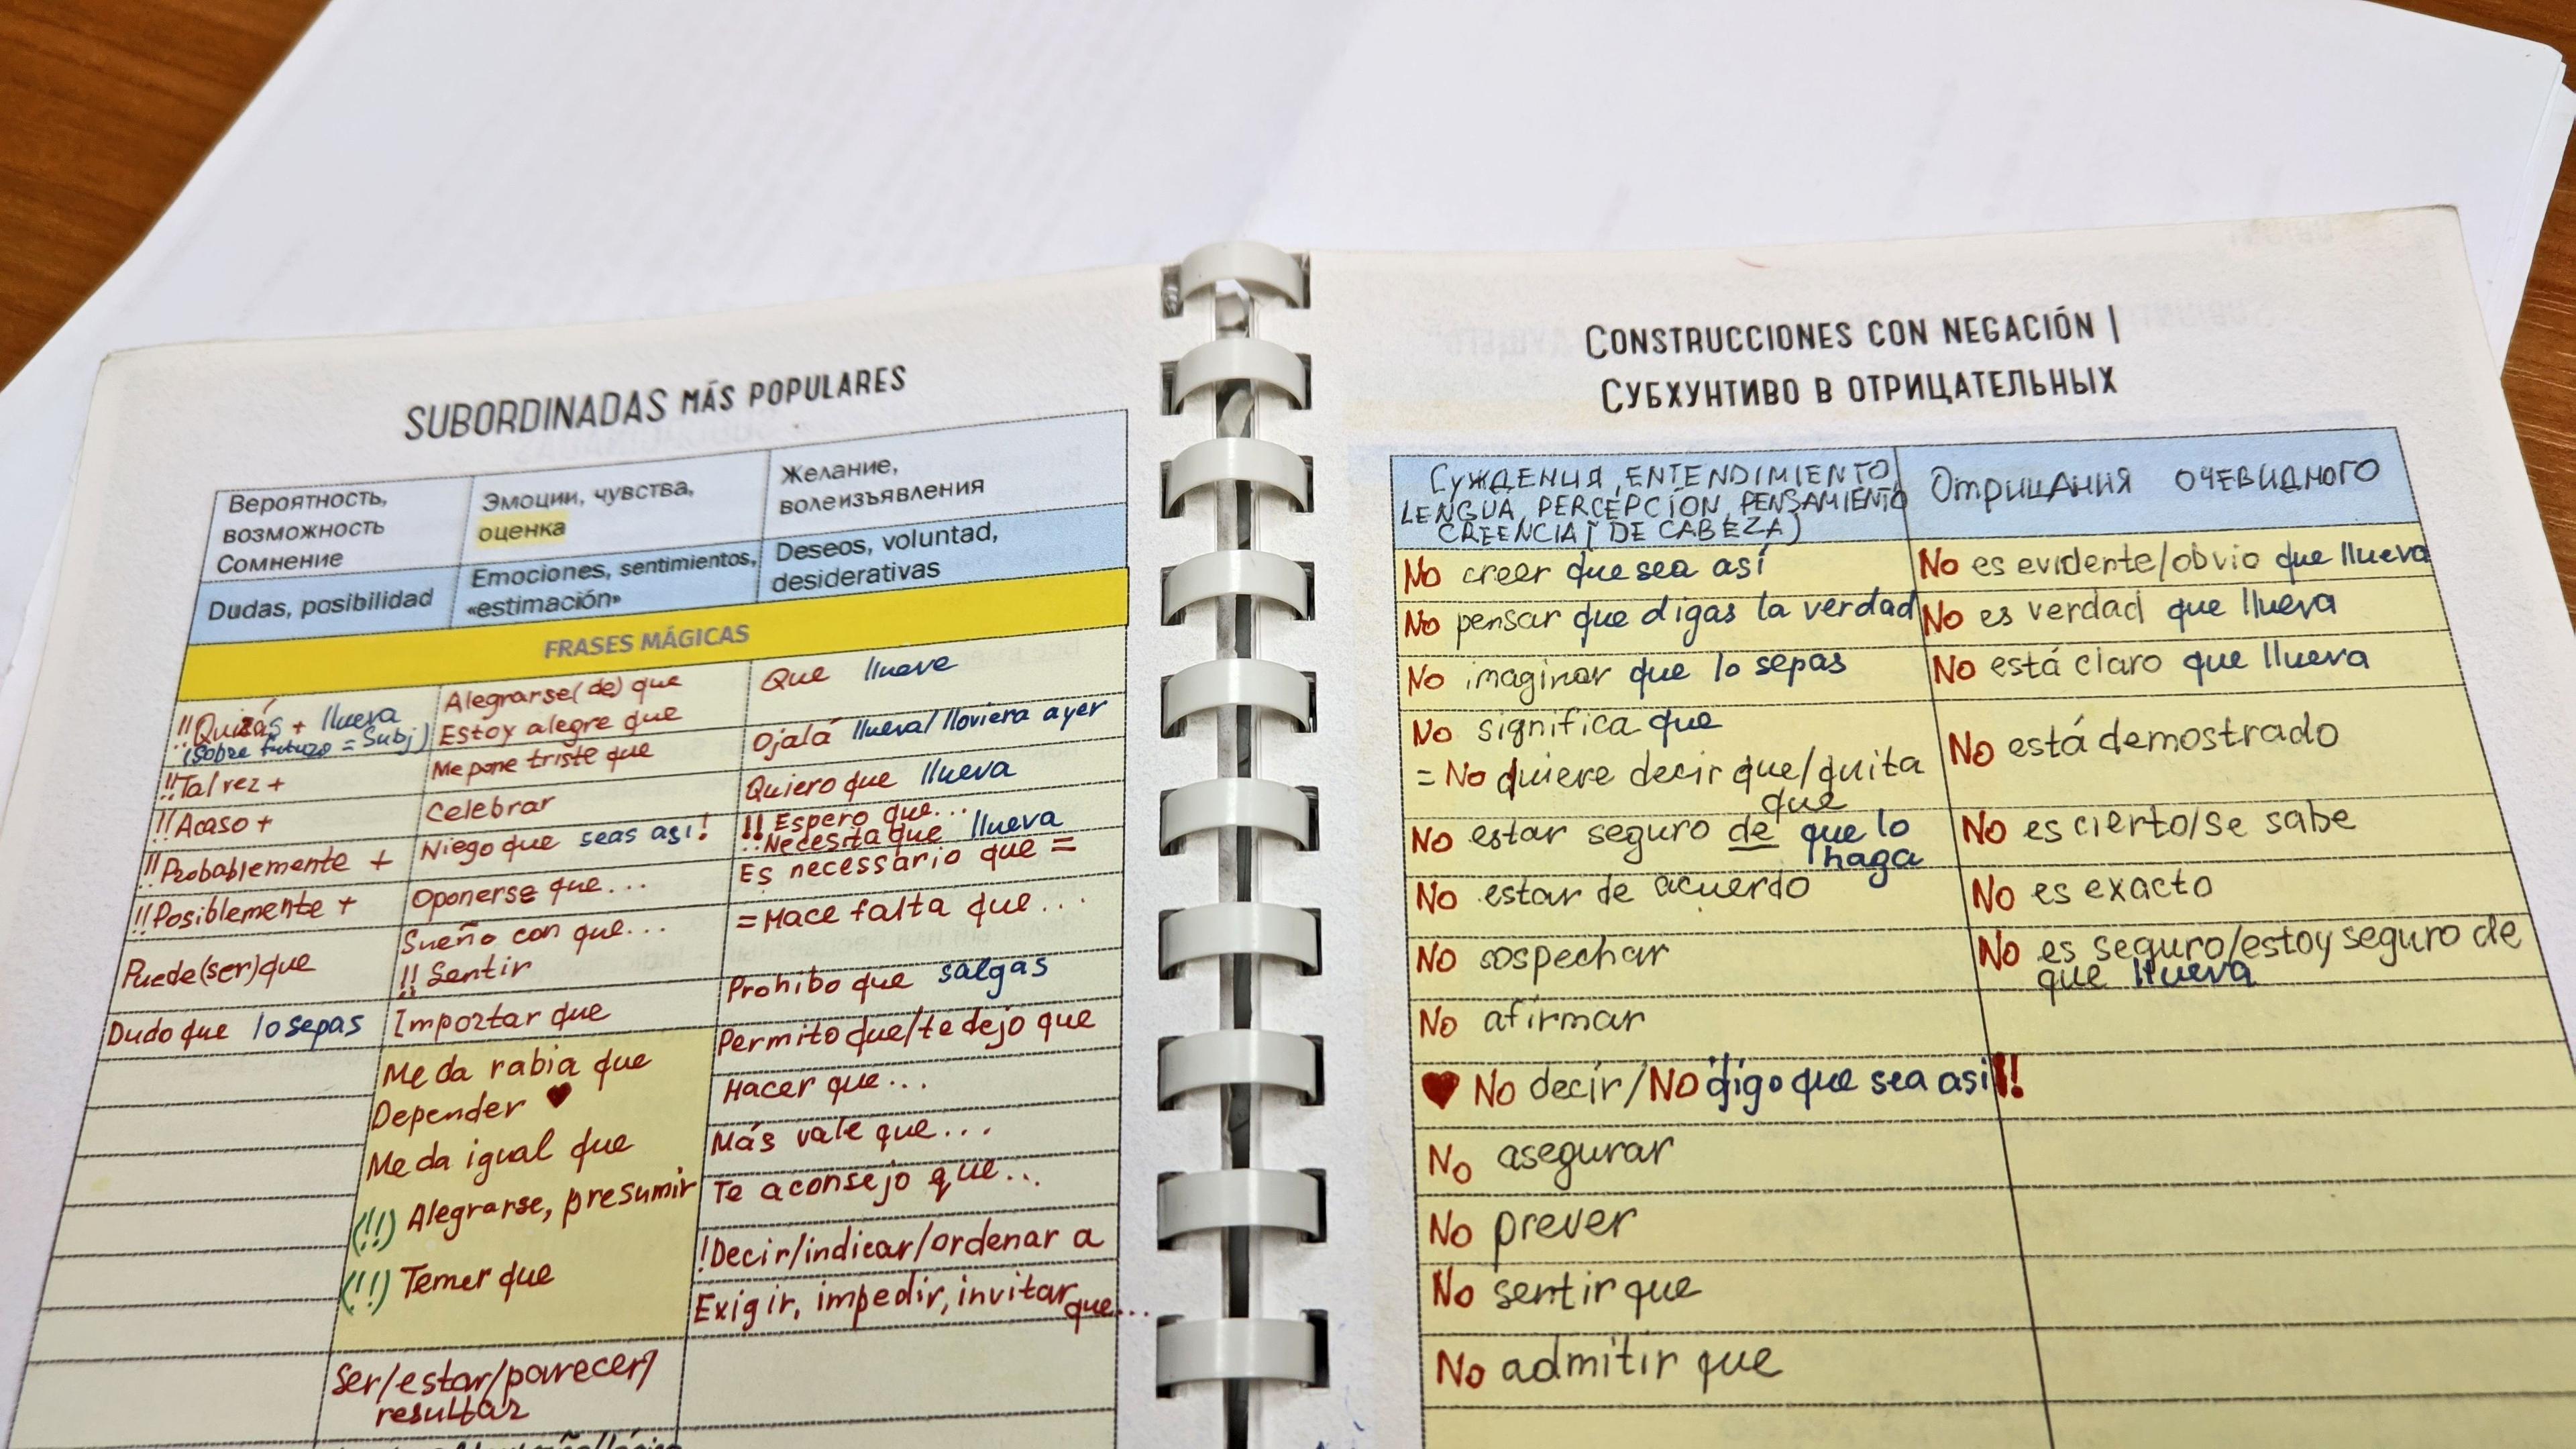 SUBORDINADAS MÁS POPULARES
Вероятность,
возможность
Сомнение
Эмоции, чувства,
оценка
Желание,
волеизъявления
Dudas, posibilidad
Emociones, sentimientos,
«estimación»
Deseos, voluntad,
desiderativas
FRASES MÁGICAS
!!Quizás + llueva
(Sobre futuro = Subj)
!!Tal vez +
!!Acaso +
!!Probablemente +
!!Posiblemente +
Puede(ser)que
Dudo que lo sepas
Alegrarse(de) que
Estoy alegre que
Me pone triste que
Celebrar
Niego que seas asi!
Oponerse que...
Sueño con que...
!! Sentir
Importar que
Me da rabia que
Depender ♥
Me da igual que
(!!) Alegrarse, presumir
(!!) Temer que
Ser/estar/parecer/
resultar
Que llueve
Ojalá llueva/lloviera ayer
Quiero que llueva
!! Espero que...
Necesita que llueva
Es necessario que =
=Hace falta que...
Prohibo que salgas
Permito que/te dejo que
Hacer que...
Más vale que...
Te aconsejo que...
!Decir/indicar/ordenar a
Exigir, impedir, invitar que...
CONSTRUCCIONES CON NEGACIÓN |
СУБХУНТИВО В ОТРИЦАТЕЛЬНЫХ
СУЖДЕНИЯ, ENTENDIMIENTO
LENGUA, PERCEPCIÓN, PENSAMIENTO
CREENCIA (DE CABEZA)
ОТРИЦАНИЯ ОЧЕВИДНОГО
No creer que sea así
No pensar que digas la verdad
No imaginar que lo sepas
No significa que
= No quiere decir que/quita
que
No estar seguro de que lo
haga
No estar de acuerdo
No sospechar
No afirmar
♥ No decir/No digo que sea asi!!
No asegurar
No prever
No sentir que
No admitir que
No es evidente/obvio que llueva
No es verdad que llueva
No está claro que llueva
No está demostrado
No es cierto/se sabe
No es exacto
No es seguro/estoy seguro de
que llueva